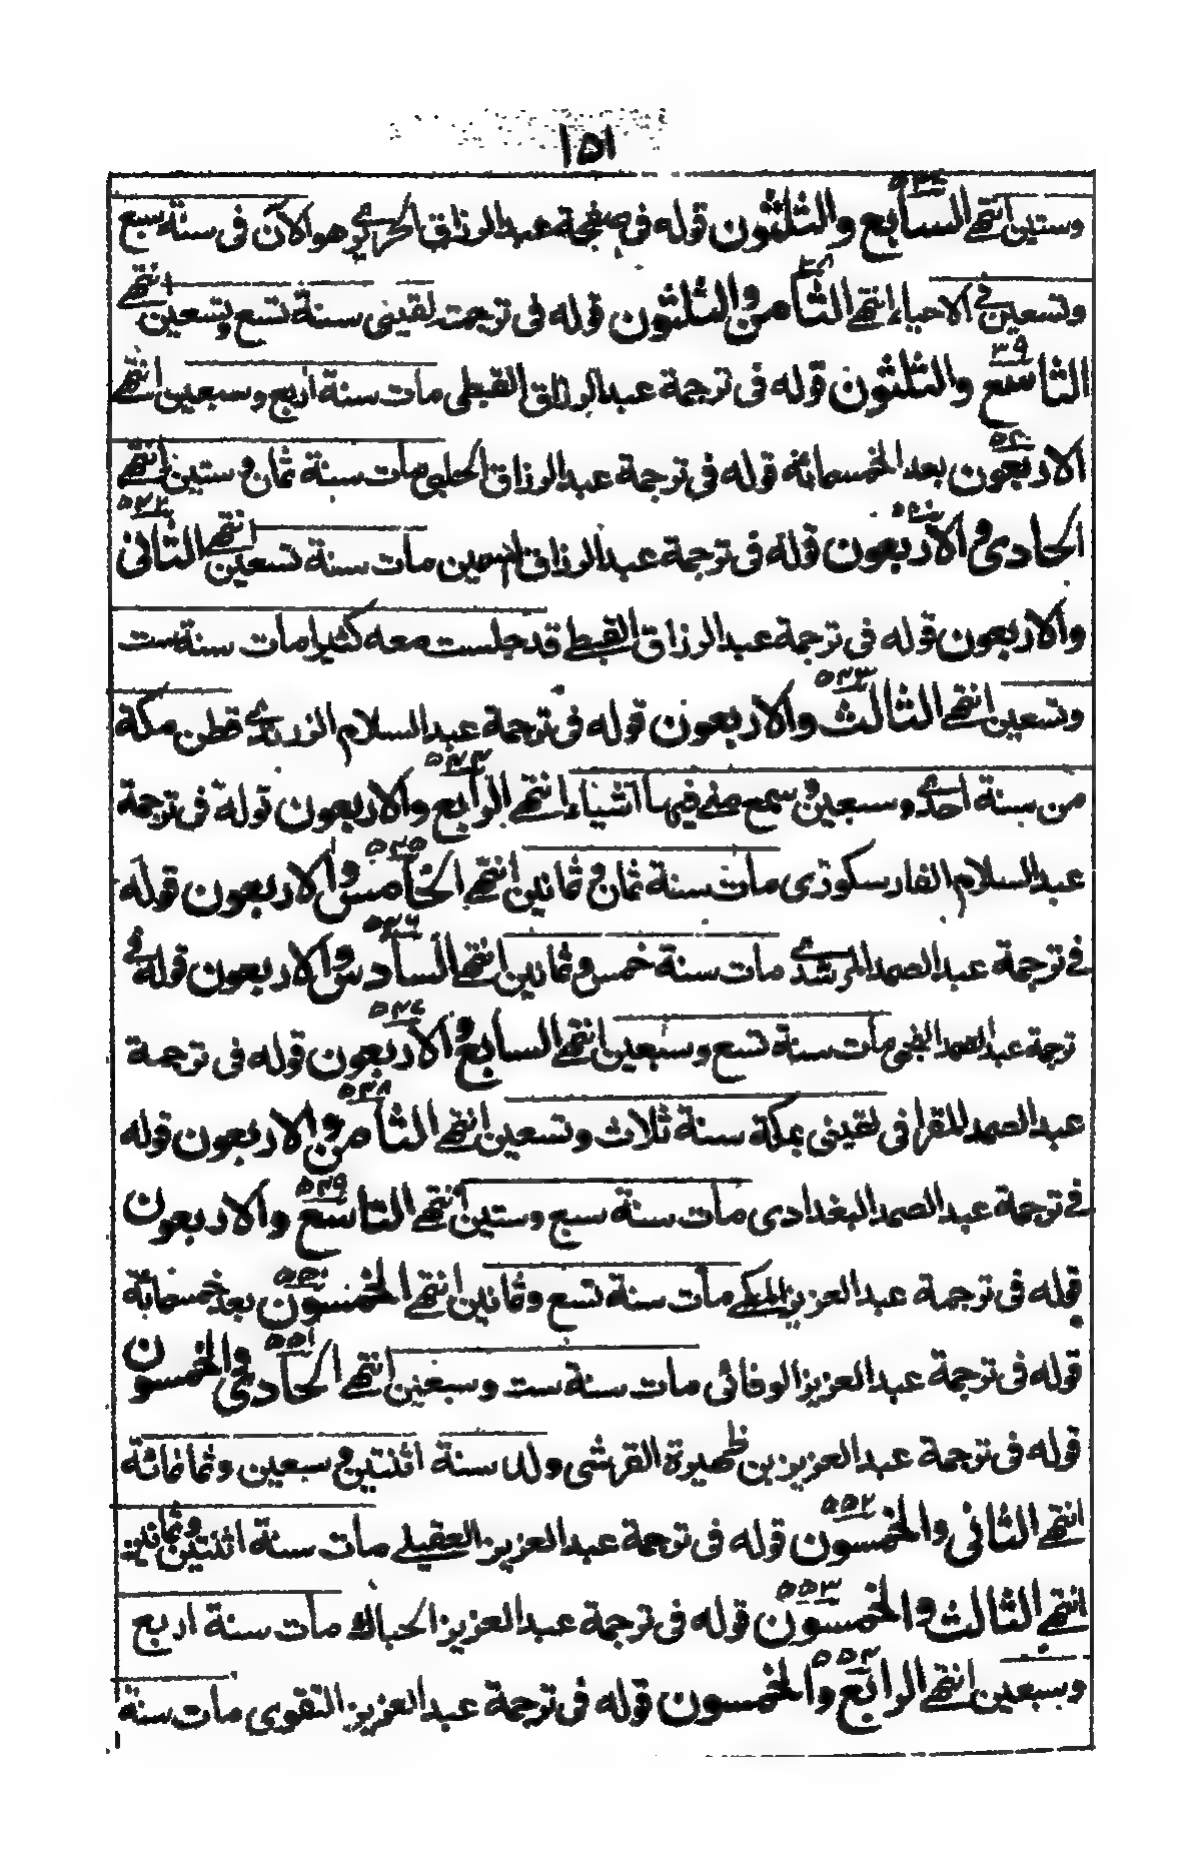 ١٥١
وستين انتهے السابع والثلثون قوله فى صفحة عبد الرزاق وهو الآن فى سنة سبع
٥٣٧
وتسعين فى الاحياء انتهے الثامن والثلثون قوله فى ترجمت لقينى سنة تسع وتسعين انتهے
٣٨
٣٩
التاسع والثلثون قوله فى ترجمة عبد الرزاق القبطى مات سنة اربع وسبعين انتهے
٥٤٠
الاربعون بعد الخمسمائة قوله فى ترجمة عبد الرزاق الحلبى مات سنة ثمان وستين انتهے
الحادى والاربعون قوله فى ترجمة عبد الرزاق مات سنة تسعين انتهے الثانى
٥٤٢
والاربعون قوله فى ترجمة عبد الرزاق القبطے قد جلست معه كثيرا مات سنة ست
وتسعين انتهے الثالث والاربعون قوله فى ترجمة عبد السلام الزرندے قطن مكة
٥٤٣
من سنة احدے وسبعين وسمع منے فيها اشياء انتهے الرابع والاربعون قوله فى ترجمة
٥٤٤
عبد السلام الفارسكوزى مات سنة ثمان وثمانين انتهے الخامس والاربعون قوله
٥٤٥
فے ترجمة عبد الصمد المرشدے مات سنة خمس وثمانين انتهے السادس والاربعون قوله فے
٥٤٦
ترجمة عبد الصمد مات سنة تسع وسبعين انتهے السابع والاربعون قوله فى ترجمة
٥٤٧
عبد الصمد للقرافى لقينى بمكة سنة ثلاث وتسعين انتهے الثامن والاربعون قوله
٥٤٨
فے ترجمة عبد الصمد البغدادى مات سنة سبع وستين انتهے التاسع والاربعون
٥٤٩
قوله فى ترجمة عبد العزيز المكے مات سنة تسع وثمانين انتهے الخمسون بعد خمسمائة
٥٥٠
قوله فى ترجمة عبد العزيز الوفائى مات سنة ست وسبعين انتهے الحادى والخمسون
٥٥١
قوله فى ترجمة عبد العزيز بن ظهيرة القرشى ولد سنة اثنتين وسبعين وثمانمائة
انتهے الثانى والخمسون قوله فى ترجمة عبد العزيز العقيلے مات سنة اثنتين وثمانين
٥٥٢
انتهے الثالث والخمسون قوله فى ترجمة عبد العزيز مات سنة اربع
٥٥٣
وسبعين انتهے الرابع والخمسون قوله فى ترجمة عبد العزيز التقوى مات سنة
٥٥٤